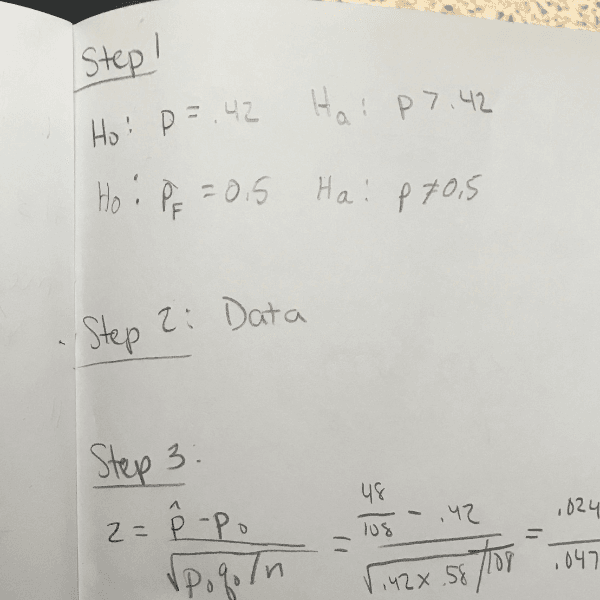 Step 1
Ho: p = .42 Ha: p > .42
Ho: p̂F = 0.5 Ha: p ≠ 0.5
Step 2: Data
Step 3:
z = p̂ - p₀ / √p₀q₀/n = 48/108 - .42 / √.42 x .58/108 = .024 / .047